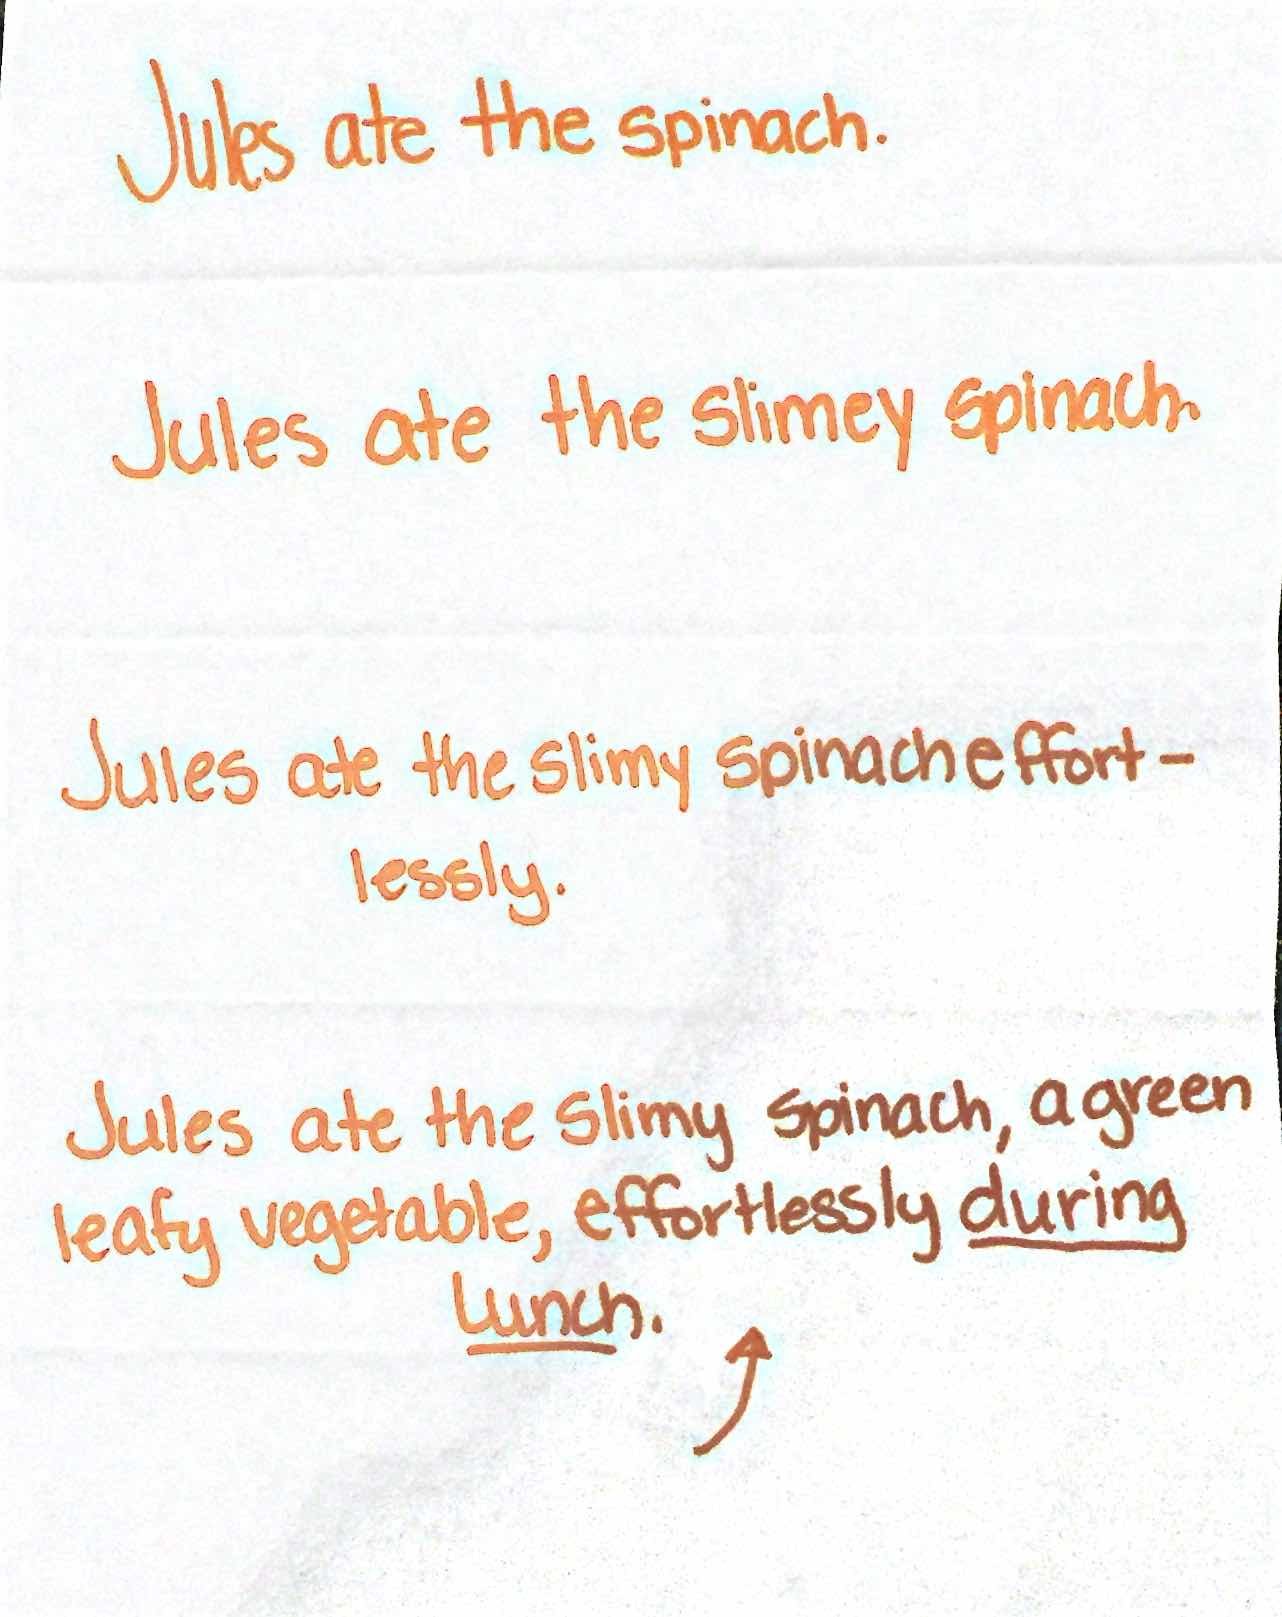 Jules ate the spinach.
Jules ate the slimey spinach.
Jules ate the slimy spinach effort-
lessly.
Jules ate the slimy spinach, a green
leafy vegetable, effortlessly during
lunch.